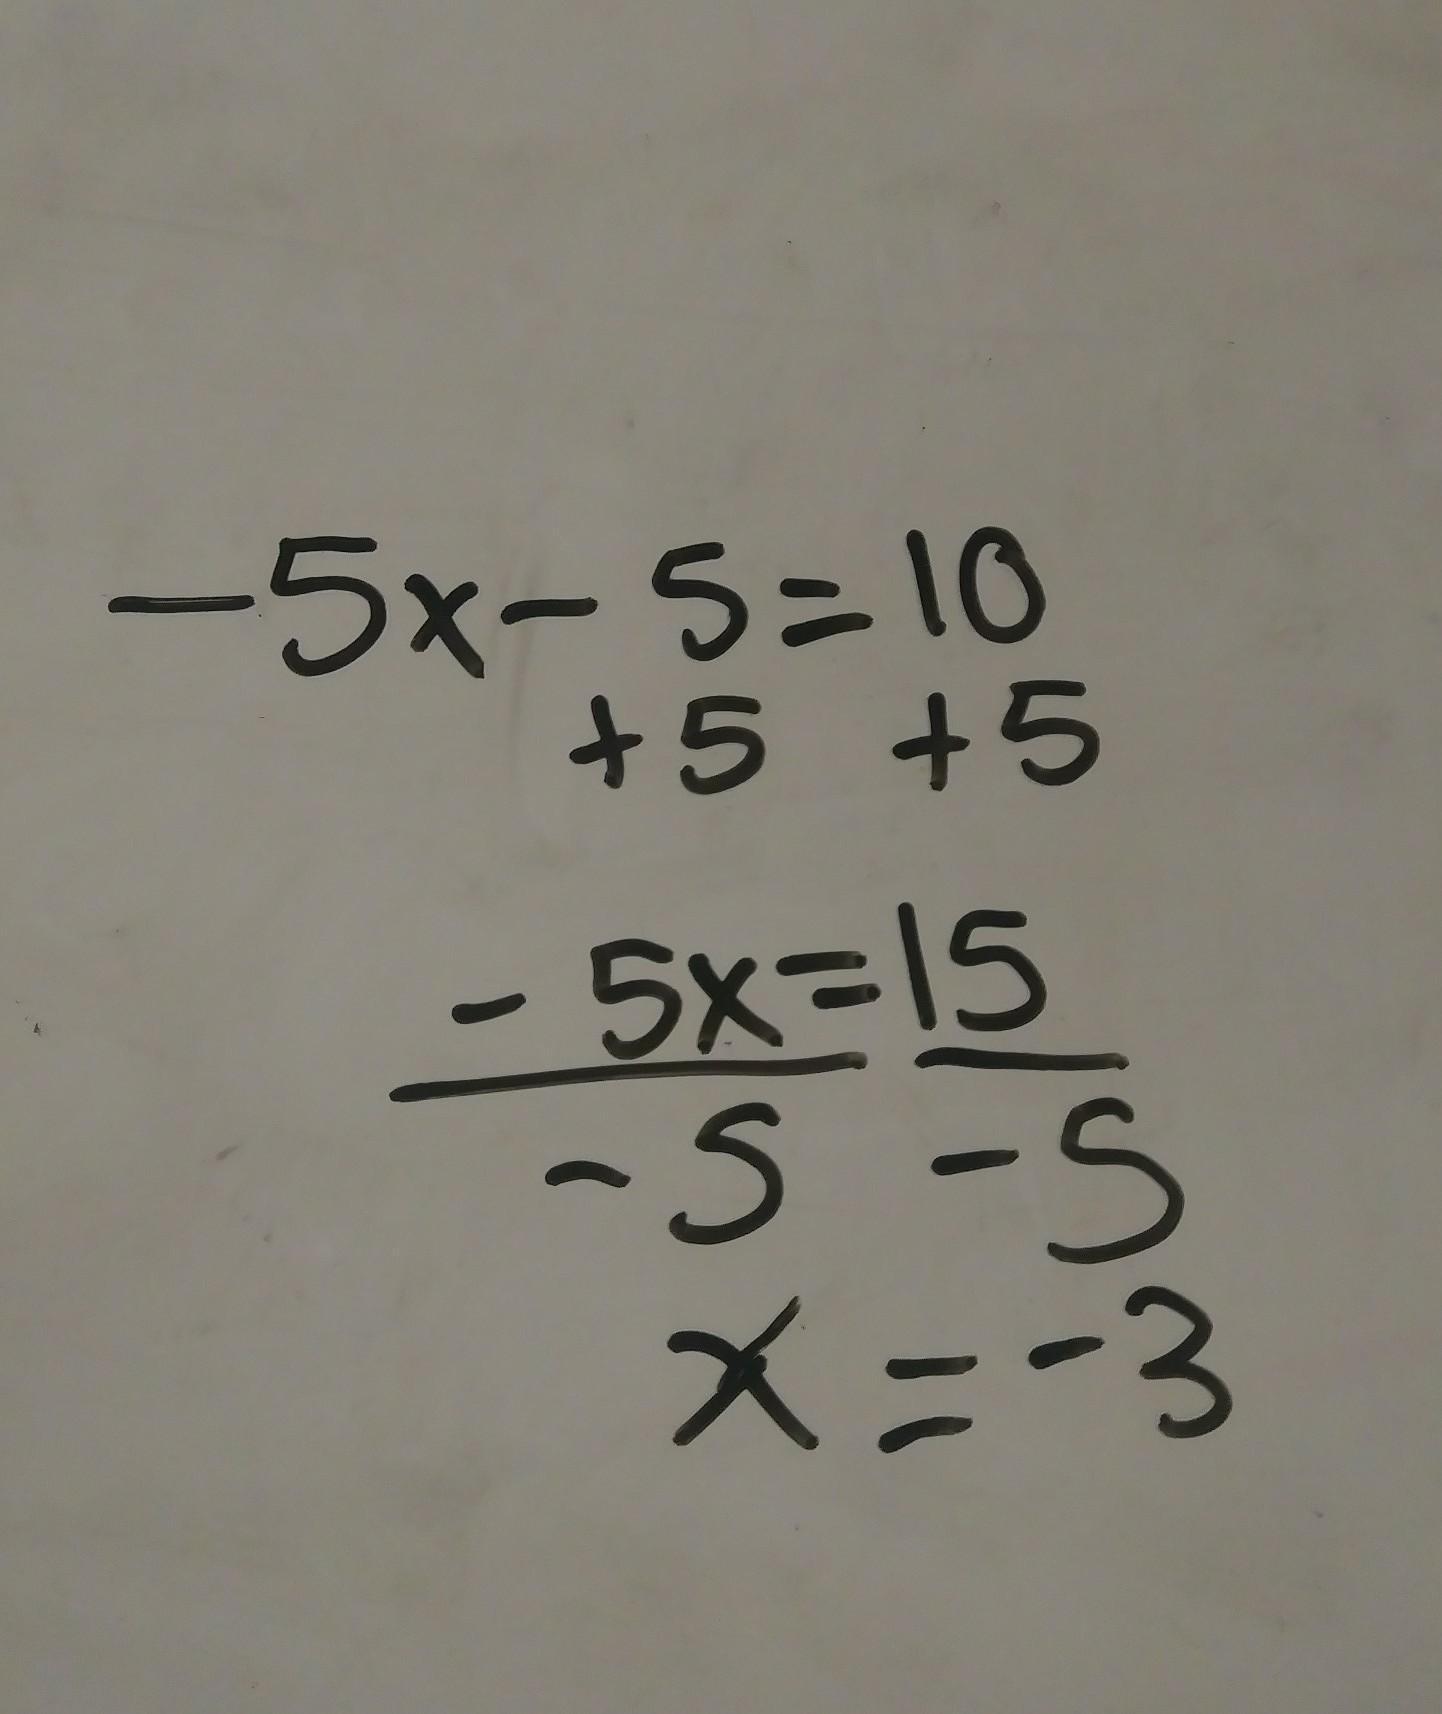 -5x - 5 = 10
+5 +5
-5x = 15
-5 -5
x = -3